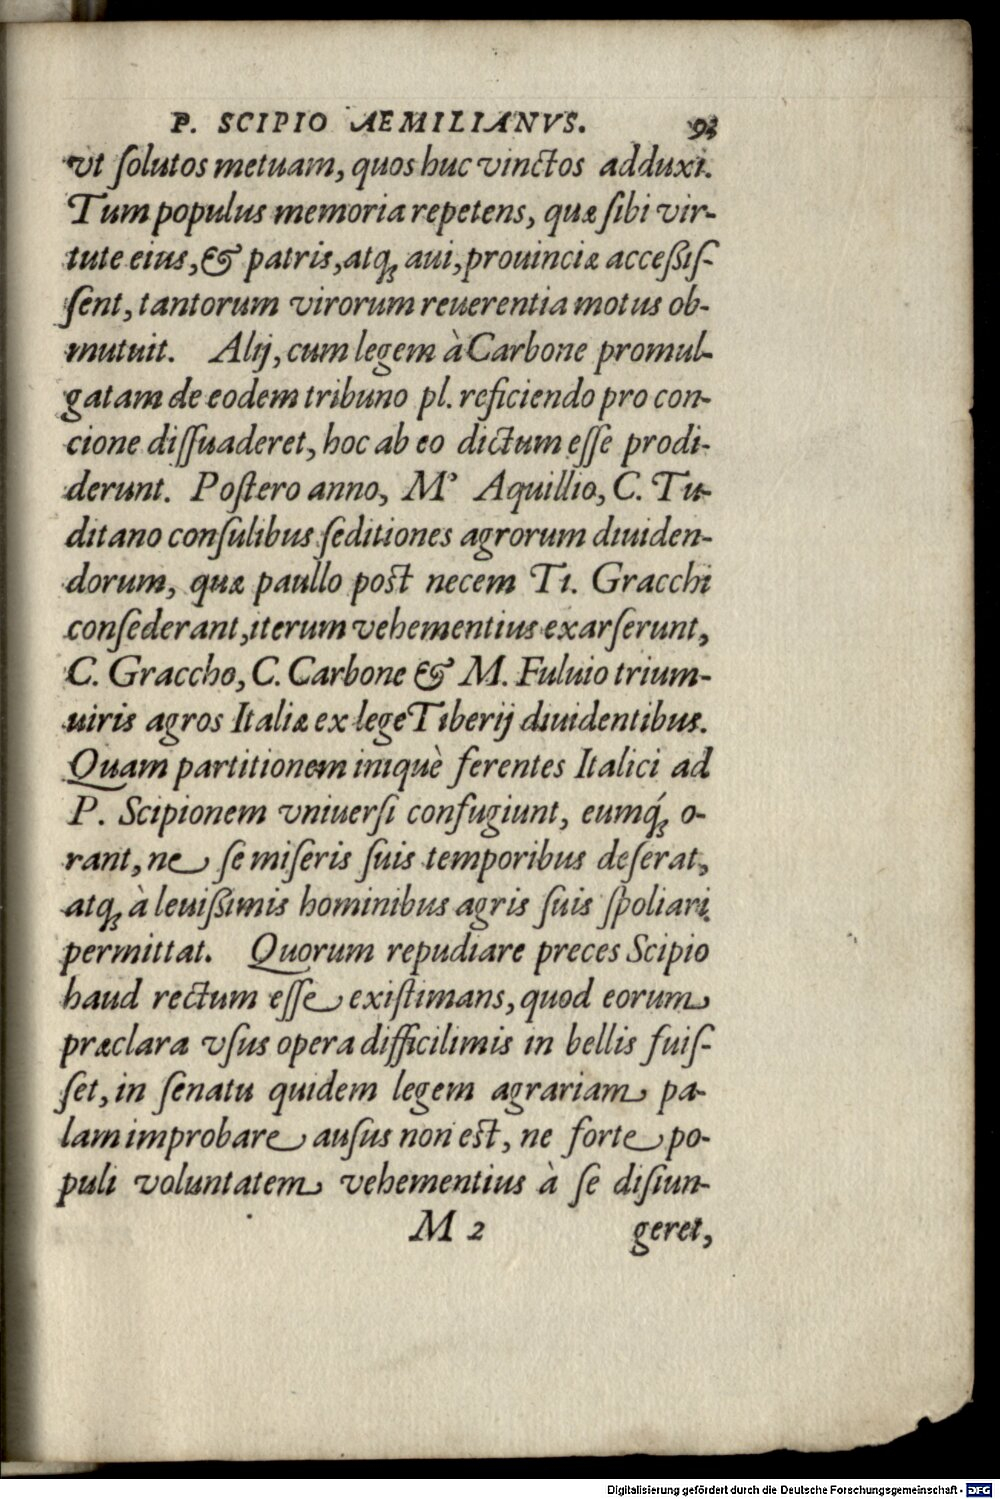 P. SCIPIO AEMILIANVS. 92
vt ſolutos metuam, quos huc vinctos adduxi.
Tum populus memoria repetens, quæ ſibi vir-
tute eius, & patris, atq; aui, prouinciæ acceßiſ-
ſent, tantorum virorum reuerentia motus ob-
mutuit. Alij, cum legem à Carbone promul-
gatam de eodem tribuno pl. reficiendo pro con-
cione diſſuaderet, hoc ab eo dictum eſſe prodi-
derunt. Poſtero anno, M' Aquillio, C. Tu-
ditano conſulibus ſeditiones agrorum diuiden-
dorum, quæ paullo poſt necem Ti. Gracchi
conſederant, iterum vehementius exarſerunt,
C. Graccho, C. Carbone & M. Fuluio trium-
uiris agros Italiæ ex lege Tiberij diuidentibus.
Quam partitionem iniquè ferentes Italici ad
P. Scipionem vniuerſi confugiunt, eumq́; o-
rant, ne ſe miſeris ſuis temporibus deſerat,
atq; à leuißimis hominibus agris ſuis ſpoliari
permittat. Quorum repudiare preces Scipio
haud rectum eſſe exiſtimans, quod eorum
præclara vſus opera difficilimis in bellis fuiſ-
ſet, in ſenatu quidem legem agrariam pa-
lam improbare auſus non eſt, ne forte po-
puli voluntatem vehementius à ſe diſiun-
M 2 geret,
Digitalisierung gefördert durch die Deutsche Forschungsgemeinschaft - DFG